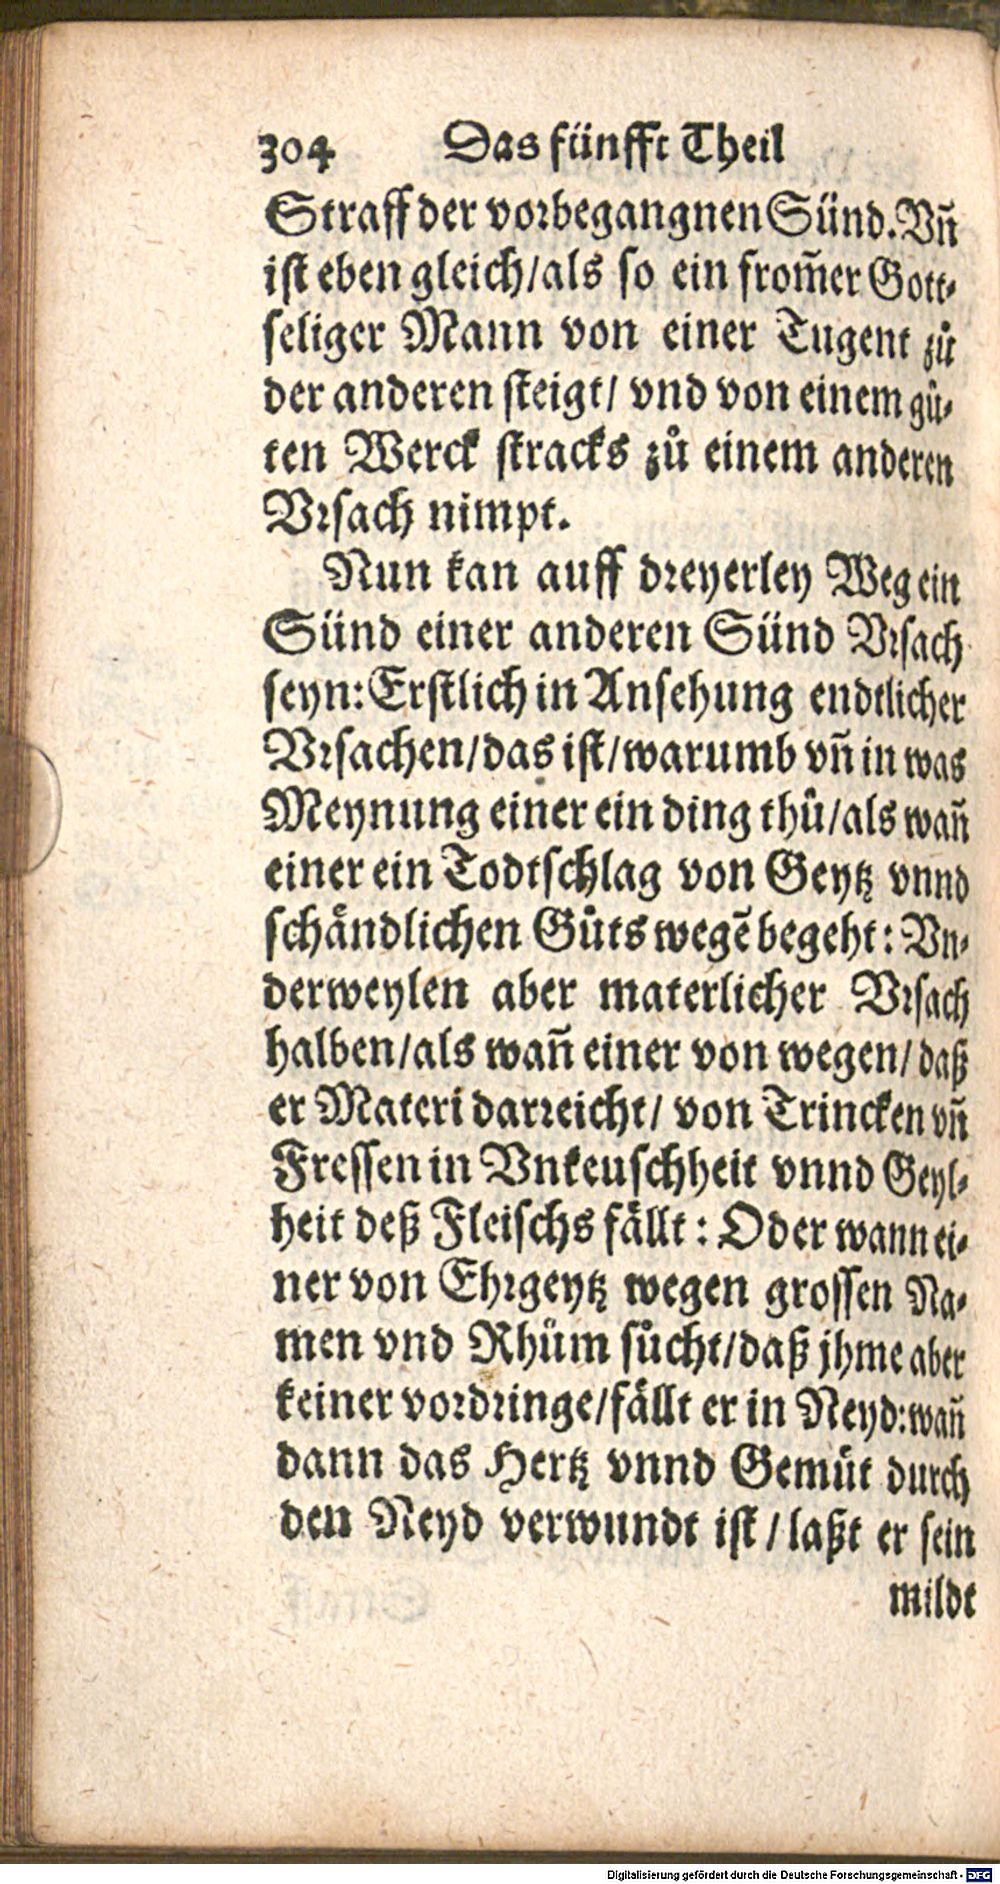 304 Das fünfft Theil
Straff der vorbegangnen Sünd. Vn̄
ist eben gleich/als so ein from̄er Gott-
seliger Mann von einer Tugent zů
der anderen steigt/ vnd von einem gů-
ten Werck stracks zů einem anderen
Vrsach nimpt.
Nun kan auff dreyerley Weg ein
Sünd einer anderen Sünd Vrsach
seyn: Erstlich in Ansehung endtlicher
Vrsachen/das ist/warumb vn̄ in was
Meynung einer ein ding thů/als wan̄
einer ein Todtschlag von Geytz vnnd
schåndlichen Gůts wegē begeht: Vn-
derweylen aber materlicher Vrsach
halben/als wan̄ einer von wegen/daß
er Materi darreicht/ von Trincken vn̄
Fressen in Vnkeuschheit vnnd Geyl-
heit deß Fleischs fållt: Oder wann ei-
ner von Ehrgeytz wegen grossen Na-
men vnd Rhům sůcht/daß jhme aber
keiner vordringe/fållt er in Neyd: wan̄
dann das Hertz vnnd Gemüt durch
den Neyd verwundt ist/laßt er sein
mildt
Digitalisierung gefördert durch die Deutsche Forschungsgemeinschaft - DFG